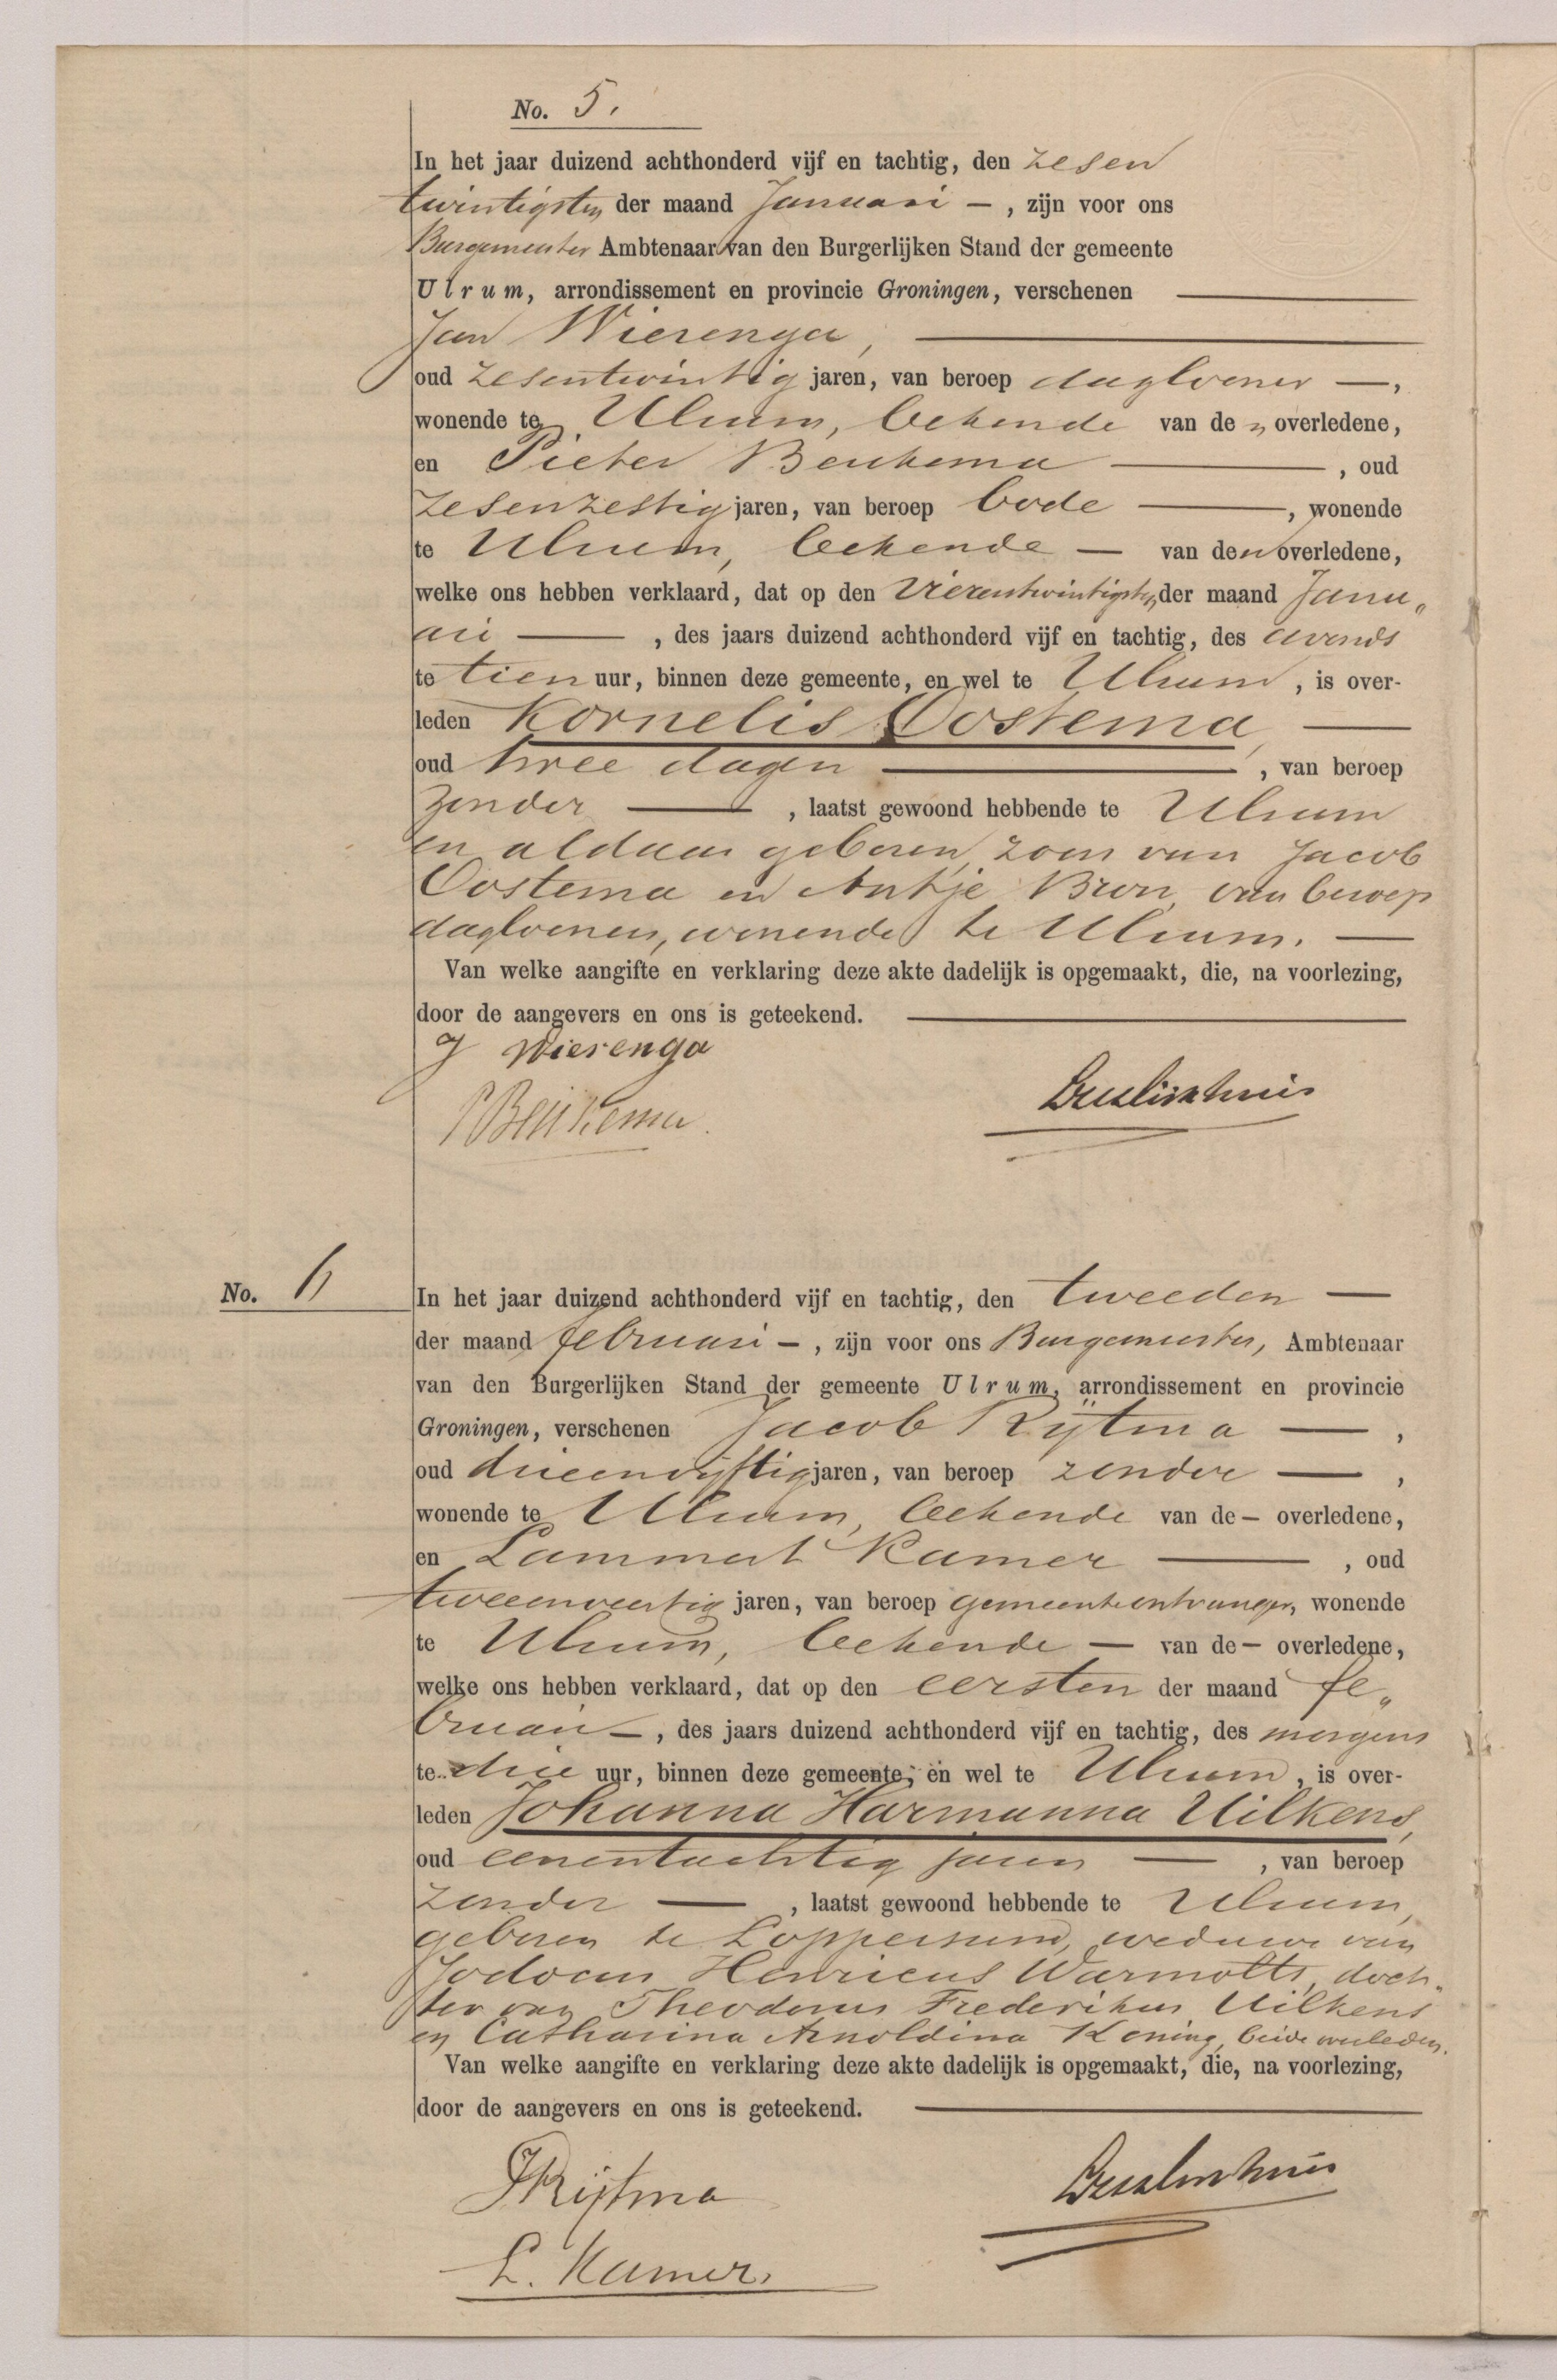 No. 5.
In het jaar duizend achthonderd vijf en tachtig, den zesen
twintigsten der maand Januari — , zijn voor ons
Burgemeester Ambtenaar van den Burgerlijken Stand der gemeente
Ulrum, arrondissement en provincie Groningen, verschenen
Jan Wierenga,
oud zesentwintig jaren, van beroep daglooner —,
wonende te Ulrum, bekende van den overledene,
en Pieter Beukema — , oud
zesenzestig jaren, van beroep bode —, wonende
te Ulrum, bekende — van den overledene,
welke ons hebben verklaard, dat op den vierentwintigsten der maand Janu„
ari — , des jaars duizend achthonderd vijf en tachtig, des avonds
te tien uur, binnen deze gemeente, en wel te Ulrum, is over-
leden Kornelis Oostema, —
oud twee dagen — , van beroep
zonder — , laatst gewoond hebbende te Ulrum
en aldaar geboren, zoon van Jacob
Oostema en Antje Bron, van beroep
daglooners, wonende te Ulrum. —
Van welke aangifte en verklaring deze akte dadelijk is opgemaakt, die, na voorlezing,
door de aangevers en ons is geteekend. —
J Wierenga
P Beukema.
No. 6
In het jaar duizend achthonderd vijf en tachtig, den tweeden —
der maand februari — , zijn voor ons Burgemeester, Ambtenaar
van den Burgerlijken Stand der gemeente Ulrum, arrondissement en provincie
Groningen, verschenen Jacob Rijtma — ,
oud drieenvijftig jaren, van beroep zonder — ,
wonende te Ulrum, bekende van de — overledene,
en Lammert Kamer — , oud
tweeenveertig jaren, van beroep gemeenteontvanger, wonende
te Ulrum, bekende — van de — overledene,
welke ons hebben verklaard, dat op den eersten der maand fe„
bruari — , des jaars duizend achthonderd vijf en tachtig, des morgens
te drie uur, binnen deze gemeente, en wel te Ulrum, is over-
leden Johanna Harmanna Uilkens,
oud eenentachtig jaren — , van beroep
zonder — , laatst gewoond hebbende te Ulrum,
geboren te Loppersum, weduwe van
Jodocus Henricus Warmolts, doch-
ter van Theodorus Frederikus Uilkens
en Catharina Arnoldina Koning, beide overleden.
Van welke aangifte en verklaring deze akte dadelijk is opgemaakt, die, na voorlezing,
door de aangevers en ons is geteekend. —
J Rijtma
L. Kamer.